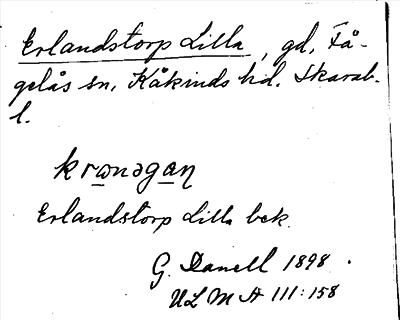 Erlandstorp Lilla, gd, Få-
gelås sn, Kåkinds hd. Skarab.
l.
krωnəgan
Erlandstorp Lilla bek.
G. Danell 1898.
ULMA 111:158